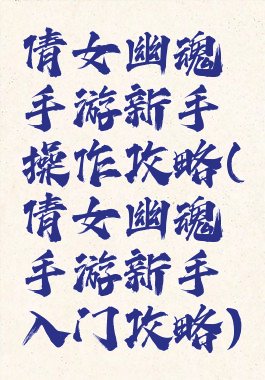 倩女幽魂
手游新手
操作攻略(
倩女幽魂
手游新手
入门攻略)